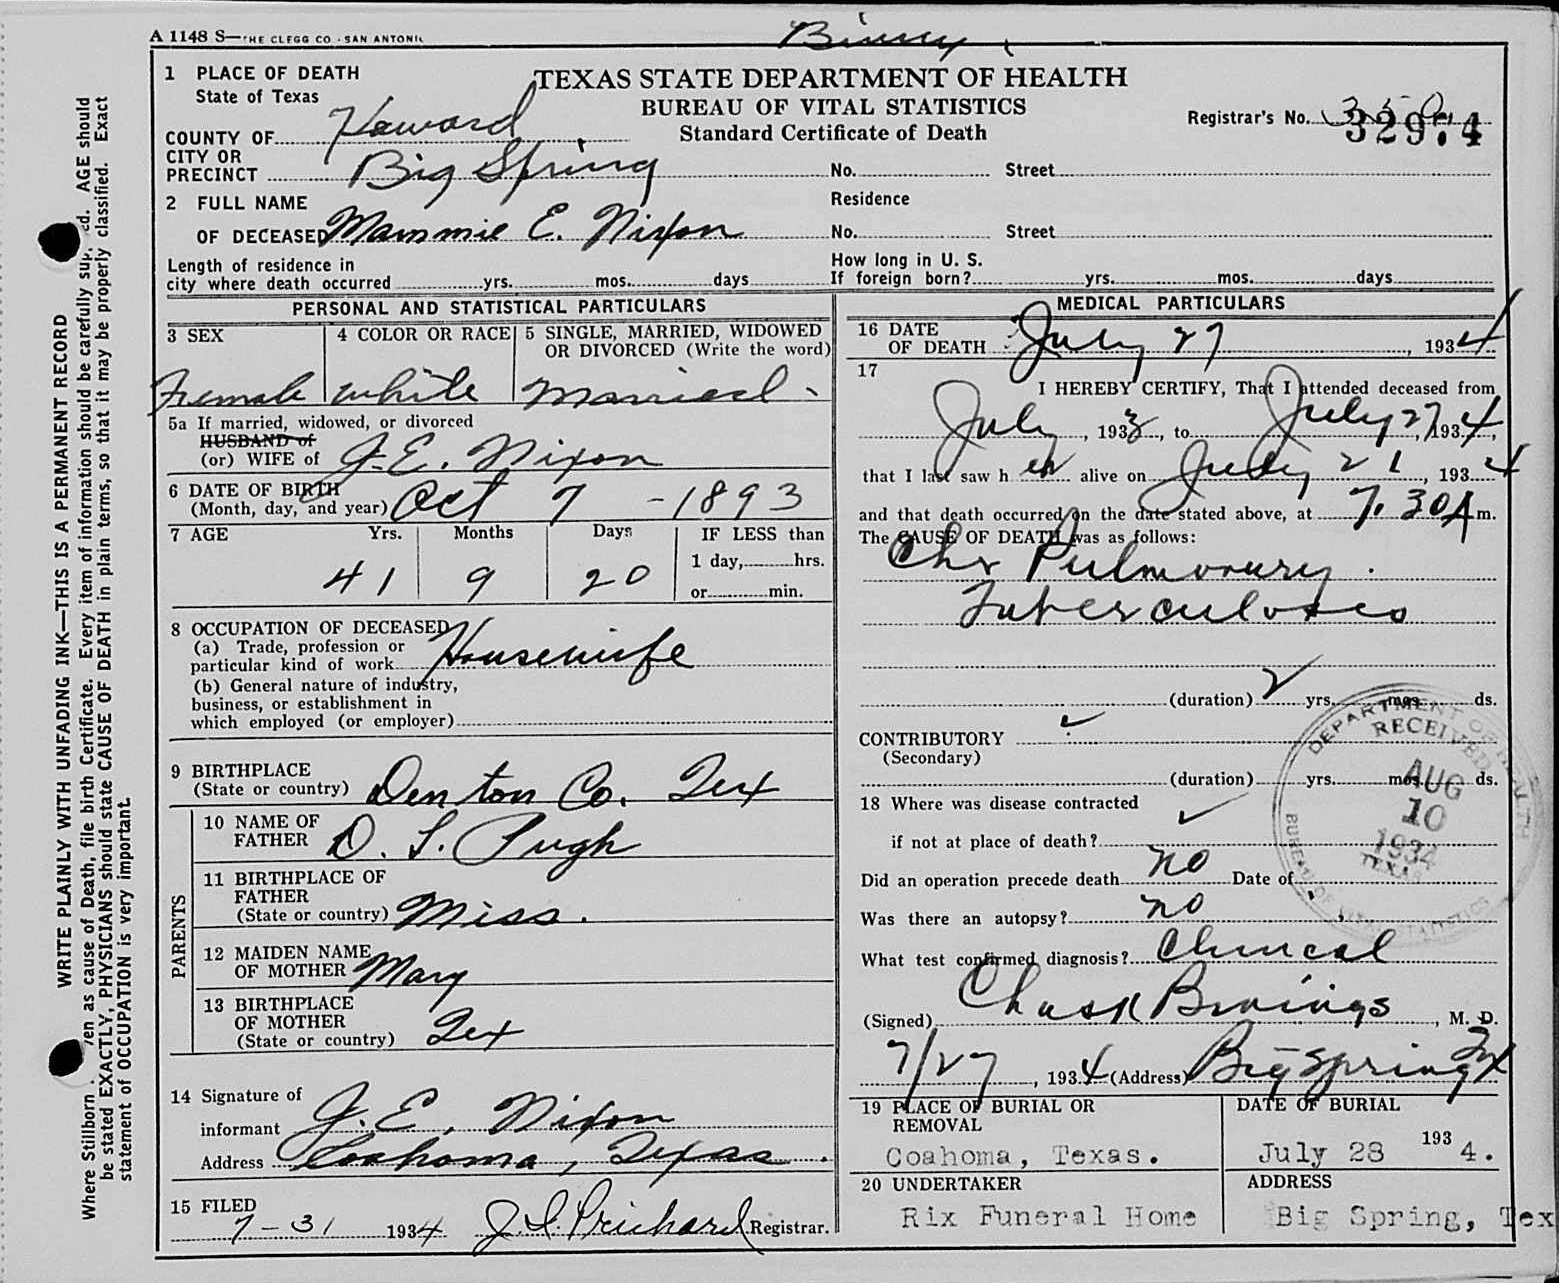 A 1148 S—THE CLEGG CO - SAN ANTONIO
1 PLACE OF DEATH
State of Texas
TEXAS STATE DEPARTMENT OF HEALTH
BUREAU OF VITAL STATISTICS
Standard Certificate of Death
Registrar's No. 32974
COUNTY OF Howard
CITY OR
PRECINCT Big Spring No. Street
2 FULL NAME
OF DECEASED Mammie E. Nixon
Residence
No. Street
Length of residence in
city where death occurred yrs. mos. days
How long in U. S.
If foreign born? yrs. mos. days
PERSONAL AND STATISTICAL PARTICULARS
3 SEX 4 COLOR OR RACE 5 SINGLE, MARRIED, WIDOWED
OR DIVORCED (Write the word)
Female white Married
5a If married, widowed, or divorced
HUSBAND of
(or) WIFE of J. E. Nixon
6 DATE OF BIRTH
(Month, day, and year) Oct 7 - 1893
7 AGE Yrs. Months Days IF LESS than
1 day, hrs.
or min.
41 9 20
8 OCCUPATION OF DECEASED
(a) Trade, profession or
particular kind of work Housewife
(b) General nature of industry,
business, or establishment in
which employed (or employer)
9 BIRTHPLACE
(State or country) Denton Co. Tex
PARENTS
10 NAME OF
FATHER D. S. Pugh
11 BIRTHPLACE OF
FATHER
(State or country) Miss.
12 MAIDEN NAME
OF MOTHER Mary
13 BIRTHPLACE
OF MOTHER
(State or country) Tex
14 Signature of
informant J. E. Nixon
Address Coahoma, Texas.
15 FILED
7-31 1934 J. I. Prichard Registrar.
MEDICAL PARTICULARS
16 DATE
OF DEATH July 27, 1934
17
I HEREBY CERTIFY, That I attended deceased from
July, 1933, to July 27, 1934,
that I last saw her alive on July 21, 1934
and that death occurred on the date stated above, at 7:30 A m.
The CAUSE OF DEATH was as follows:
Chr Pulmonary
Tuberculosis
(duration) 2 yrs. mos. ds.
CONTRIBUTORY
(Secondary)
(duration) yrs. mos. ds.
18 Where was disease contracted
if not at place of death?
Did an operation precede death no Date of
Was there an autopsy? no
What test confirmed diagnosis? Clinical
(Signed) Chas K Bivings, M. D.
7/27, 1934 (Address) Big Spring Tex
19 PLACE OF BURIAL OR
REMOVAL
Coahoma, Texas.
DATE OF BURIAL
July 28 1934.
20 UNDERTAKER
Rix Funeral Home
ADDRESS
Big Spring, Tex
DEPARTMENT OF HEALTH
RECEIVED
AUG
10
1934
TEXAS
BUREAU OF VITAL STATISTICS
WRITE PLAINLY WITH UNFADING INK—THIS IS A PERMANENT RECORD
Where Stillborn given as cause of Death, file birth Certificate. Every item of information should be carefully supplied. AGE should
be stated EXACTLY, PHYSICIANS should state CAUSE OF DEATH in plain terms, so that it may be properly classified. Exact
statement of OCCUPATION is very important.